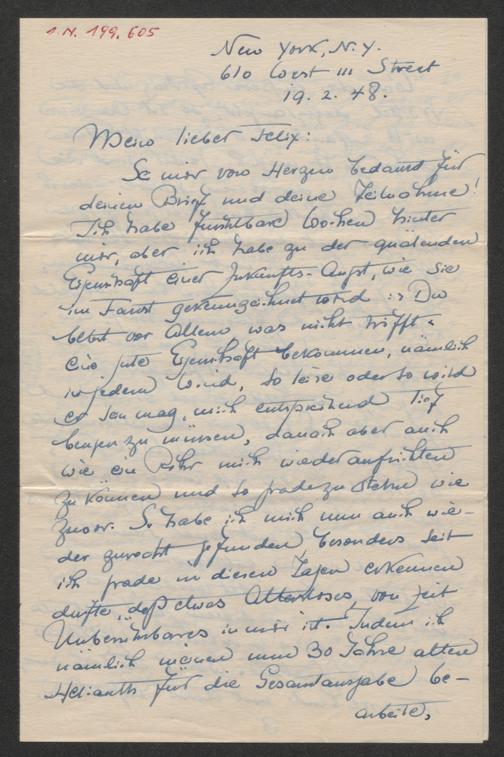 I. N. 199.605
New York, N.Y.
610 West 111 Street
19. 2. 48.
Mein lieber Felix:
Sei mir von Herzen bedankt für
deinen Brief und deine Teilnahme!
Ich habe furchtbare Wochen hinter
mir, aber ich habe zu der quälenden
Eigenschaft einer Zukunfts-Angst, wie sie
im Faust gekennzeichnet wird: „Du
bebst vor Allem was nicht trifft"
eine gute Eigenschaft bekommen, nämlich
in jedem Wind, so leise oder so wild
er sein mag, mich entsprechend tief
beugen zu müssen, danach aber auch
wie ein Rohr mich wieder aufrichten
zu können und so gradezu stehn wie
zuvor. So habe ich mich nun auch wie-
der zurecht gefunden besonders seit
ich grade in diesen Tagen erkennen
durfte, daß etwas Altersloses, von Zeit
Unberührbares in mir ist. Indem ich
nämlich meinen nun 30 Jahre alten
Helianth für die Gesamtausgabe be-
arbeite,